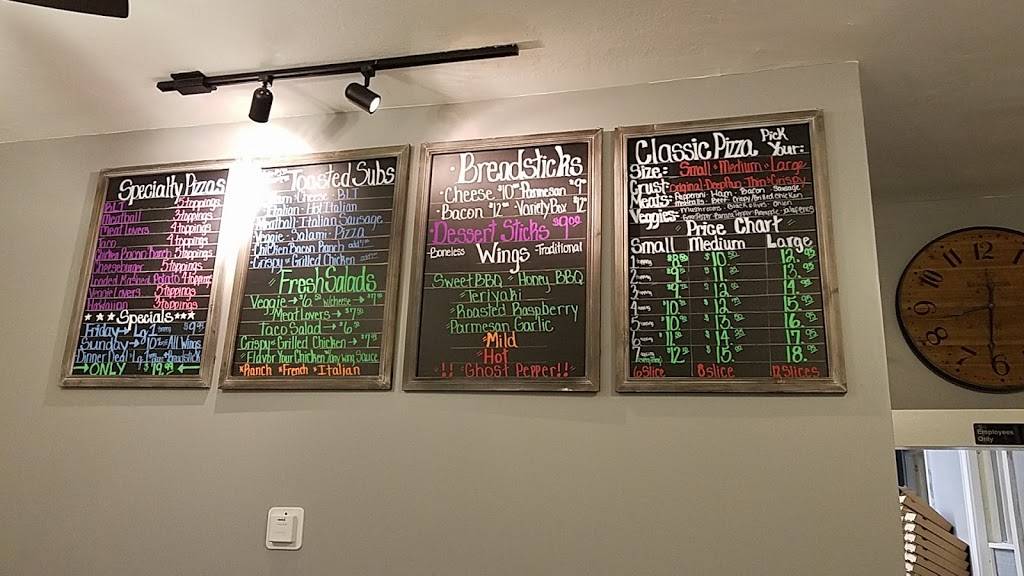 Specialty Pizzas
BLT 5 toppings
Meatball 3 toppings
Meat Lovers 4 toppings
Taco 4 toppings
Chicken Bacon Ranch 3 toppings
Cheeseburger 5 toppings
Loaded Mashed Potato 4 toppings
Veggie Lovers 5 toppings
Hawaiian 3 toppings
***Specials***
Friday → Lg 1 $9.95
Sunday → 10% All Wings
Dinner Deal Lg 1 Breadstick
ONLY $19.99
Toasted Subs
Ham Cheese · BLT
Italian · Hot Italian
Meatball · Italian Sausage
Veggie · Salami · Pizza
Chicken Bacon Ranch
Crispy · Grilled Chicken
Fresh Salads
Veggie → 6.50 w/cheese → 7
Meat Lovers → $7
Taco Salad → $6.50
Crispy · Grilled Chicken →
Flavor Your Chicken any wing Sauce
Ranch French Italian
Breadsticks
Cheese $10 · Parmesan $9
Bacon $12 · Variety Box $12
Dessert Sticks $9.00
Boneless Wings Traditional
Sweet BBQ Honey BBQ
Teriyaki
Roasted Raspberry
Parmesan Garlic
Mild
Hot
!! Ghost Pepper!!
Classic Pizza Pick Your:
Size: Small · Medium · Large
Crust: Original · Deep Pan · Thin & Crispy
Meats: Pepperoni · Ham · Bacon · Sausage
Meatballs · Beef · Crispy/Grilled Chicken
Veggies: Mushrooms · Black Olives · Onion
Price Chart
Small Medium Large
1 $8. $10. 12.
2 9. 11. 13.
3 9. 12. 14.
4 10. 13. 15.
5 10. 14. 16.
6 11. 14. 17.
7 12. 15. 18.
6 slice 8 slice 12 slices
12
11
10
9
8
7
6
Employees
Only